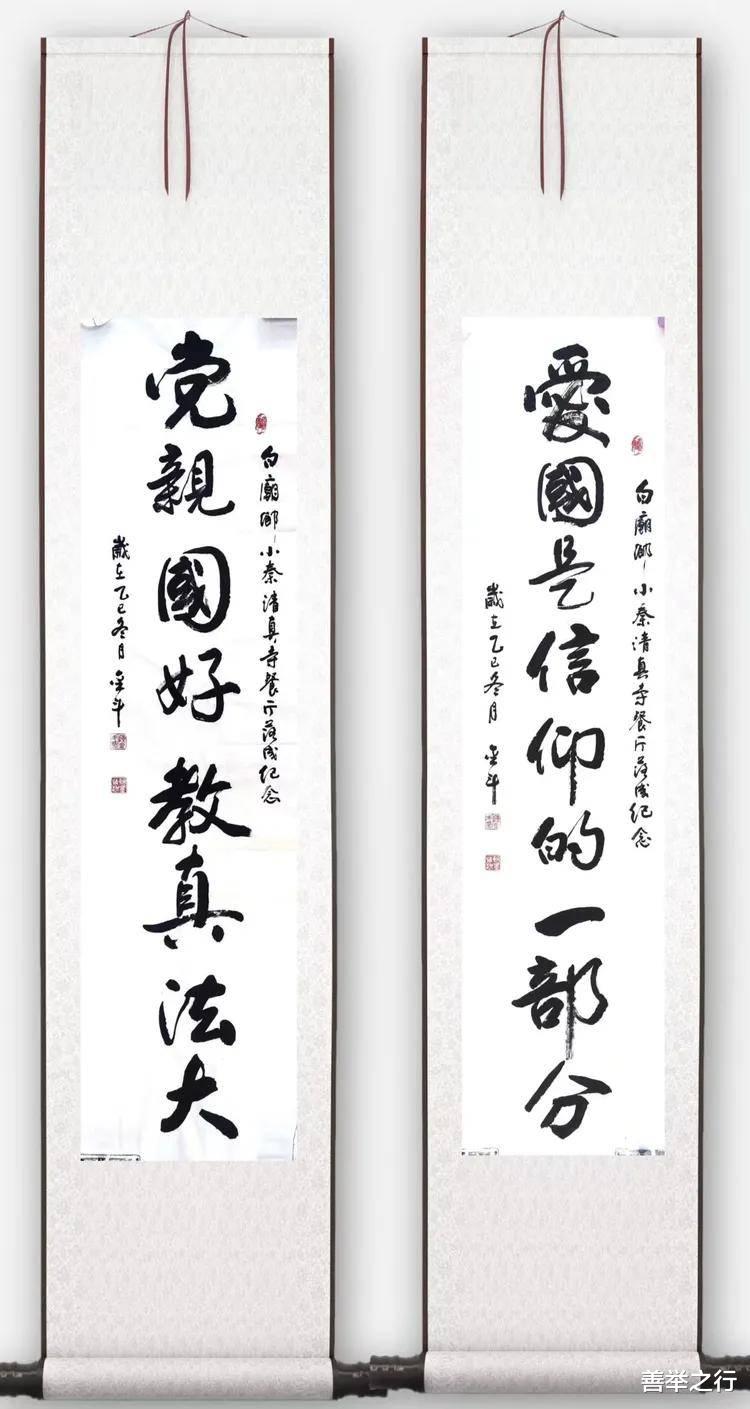 愛國是信仰的一部分
白廟鄉小秦清真寺餐厅落成纪念
歲在乙巳冬月 金斗
党親國好教真法大
白廟鄉小秦清真寺餐厅落成纪念
歲在乙巳冬月 金斗
善举之行